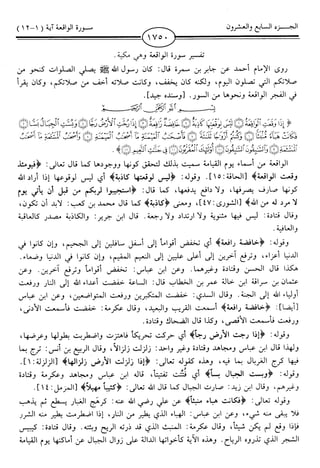 الجزء السابع والعشرون
١٧٥٠
سورة الواقعة آية (١-١٢)
تفسير سورة الواقعة وهي مكية.
روى الإمام أحمد عن جابر بن سمرة قال: كان رسول الله ﷺ يصلي الصلوات كنحو من
صلاتكم التي تصلون اليوم، ولكنه كان يخفف، وكانت صلاته أخف من صلاتكم، وكان يقرأ
في الفجر الواقعة ونحوها من السور. [وسنده جيد].
الواقعة من أسماء يوم القيامة سميت بذلك لتحقق كونها ووجودها كما قال تعالى: ﴿فيومئذ
وقعت الواقعة﴾ [الحاقة: ١٥]. وقوله: ﴿ليس لوقعتها كاذبة﴾ أي ليس لوقوعها إذا أراد الله
كونها صارف يصرفها، ولا دافع يدفعها، كما قال: ﴿استجيبوا لربكم من قبل أن يأتي يوم
لا مرد له من الله﴾ [الشورى: ٤٧]. ومعنى ﴿كاذبة﴾ كما قال محمد بن كعب: لابد أن تكون،
وقال قتادة: ليس فيها مثنوية ولا ارتداد ولا رجعة. قال ابن جرير: والكاذبة مصدر كالعاقبة
والعافية.
وقوله: ﴿خافضة رافعة﴾ أي تخفض أقواماً إلى أسفل سافلين إلى الجحيم، وإن كانوا في
الدنيا أعزاء، وترفع آخرين إلى أعلى عليين إلى النعيم المقيم، وإن كانوا في الدنيا وضعاء.
هكذا قال الحسن وقتادة وغيرهما. وعن ابن عباس: تخفض أقواماً وترفع آخرين. وعن
عثمان بن سراقة ابن خالة عمر بن الخطاب قال: الساعة خفضت أعداء الله إلى النار ورفعت
أولياء الله إلى الجنة. وقال السدي: خفضت المتكبرين ورفعت المتواضعين، وعن ابن عباس
[أيضا]: ﴿خافضة رافعة﴾ أسمعت القريب والبعيد، وقال عكرمة: خفضت فأسمعت الأدنى،
ورفعت فأسمعت الأقصى، وكذا قال الضحاك وقتادة.
وقوله: ﴿إذا رجت الأرض رجاً﴾ أي حركت تحريكاً فاهتزت واضطربت بطولها وعرضها،
ولهذا قال ابن عباس ومجاهد وقتادة وغير واحد: زلزلت زلزالاً، وقال الربيع بن أنس: ترج بما
فيها كرج الغربال بما فيه، وهذه كقوله تعالى: ﴿إذا زلزلت الأرض زلزالها﴾ [الزلزلة: ١].
وقوله: ﴿وبست الجبال بساً﴾ أي فتتت تفتيتاً، قاله ابن عباس ومجاهد وعكرمة وقتادة
وغيرهم، وقال ابن زيد: صارت الجبال كما قال الله تعالى: ﴿كثيباً مهيلاً﴾ [المزمل: ١٤].
وقوله تعالى: ﴿فكانت هباء منبثاً﴾ عن علي رضي الله عنه: كرهج الغبار يسطع ثم يذهب
فلا يبقى منه شيء، وعن ابن عباس: الهباء الذي يطير من النار، إذا اضطرمت يطير منه الشرر
فإذا وقع لم يكن شيئاً، وقال عكرمة: المنبث الذي قد ذرته الريح وبثته. وقال قتادة: كيبيس
الشجر الذي تذروه الرياح. وهذه الآية كأخواتها الدالة على زوال الجبال عن أماكنها يوم القيامة